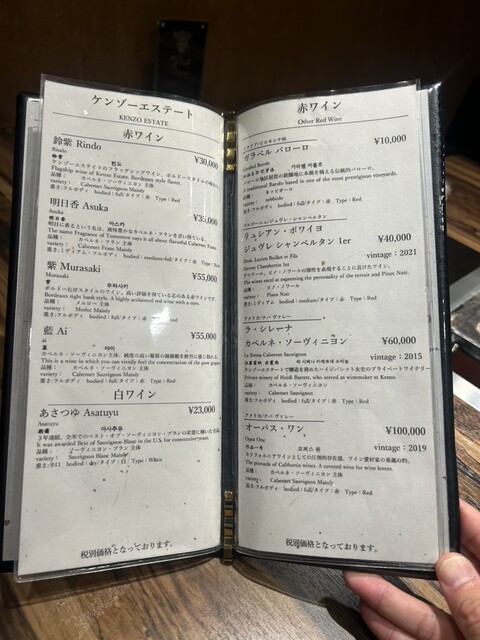 ケンゾーエステート
KENZO ESTATE
赤ワイン
鈴紫 Rindo
¥30,000
Rindo
린도
ケンゾーエステイトのフラッグシップワイン、ボルドースタイルの
Flagship wine of Kenzo Estate, Bordeaux style flavor.
品種: カベルネ・ソーヴィニヨン 主体
variety: Cabernet Sauvignon Mainly
重さ:フルボディ bodied:full/タイプ:赤 Type:Red
明日香 Asuka
¥35,000
Asuka
明日香
아스카
The same Fragrance of Tomorrow says it all about flavorful Cabernet Franc
品種: カベルネ・フラン 主体
variety: Cabernet Franc Mainly
重さ:ミディアム・フルボディ bodied:medium-full/タイプ:赤 Type:Red
紫 Murasaki
¥55,000
Murasaki
紫
무라사키
Bordeaux right bank style. A highly acclaimed red wine with a core.
品種: メルロー 主体
variety: Merlot Mainly
重さ:フルボディ bodied:full/タイプ:赤 Type:Red
藍 Ai
¥55,000
ai
아이
This is a wine in which you can vividly feel the concentration of the
品種: カベルネ・ソーヴィニヨン 主体
variety: Cabernet Sauvignon Mainly
重さ:フルボディ bodied:full/タイプ:赤 Type:Red
白ワイン
あさつゆ Asatuyu
¥23,000
朝露
아사츠유
It was awarded Best of Sauvignon Blanc in the U.S. for consecutive years.
品種: ソーヴィニヨン・ブラン 主体
variety: Sauvignon Blanc Mainly
重さ:辛口 bodied:dry/タイプ:白 Type:White
税別価格となっております。
赤ワイン
Other Red Wine
ヴラベル バローロ
¥10,000
A traditional Barolo based in one of the most prestigious vineyards.
品種: ネッビオーロ
variety: nebbiolo
重さ:フルボディ bodied:full/タイプ:赤 Type:Red
リュシアン・ボワイヨ
ジュヴレ シャンベルタン 1er
¥40,000
Dom. Lucien Boillot et Fils
vintage:2021
Gevrey Chambertin 1er
The wines excel at expressing the personality of the terroir and Pinot Noir.
品種: ピノ・ノワール
variety: Pinot Noir
重さ:ミディアム bodied:medium/タイプ:赤 Type:Red
アメリカ/ナパ ヴァレー
ラ・シレーナ
カベルネ・ソーヴィニヨン
¥60,000
La Sirena Cabernet Sauvignon
vintage:2015
Private winery of Heidi Barrett, who served as winemaker at Kenzo.
品種: カベルネ・ソーヴィニヨン
variety: Cabernet Sauvignon
重さ:フルボディ bodied:full/タイプ:赤 Type:Red
アメリカ/ナパ ヴァレー
オーパス・ワン
¥100,000
Opus One
vintage:2019
오퍼스 원
The pinnacle of California wines. A coveted wine for wine lovers.
品種: カベルネ・ソーヴィニヨン 主体
variety: Cabernet Sauvignon Mainly
重さ:フルボディ bodied:full/タイプ:赤 Type:Red
税別価格となっております。